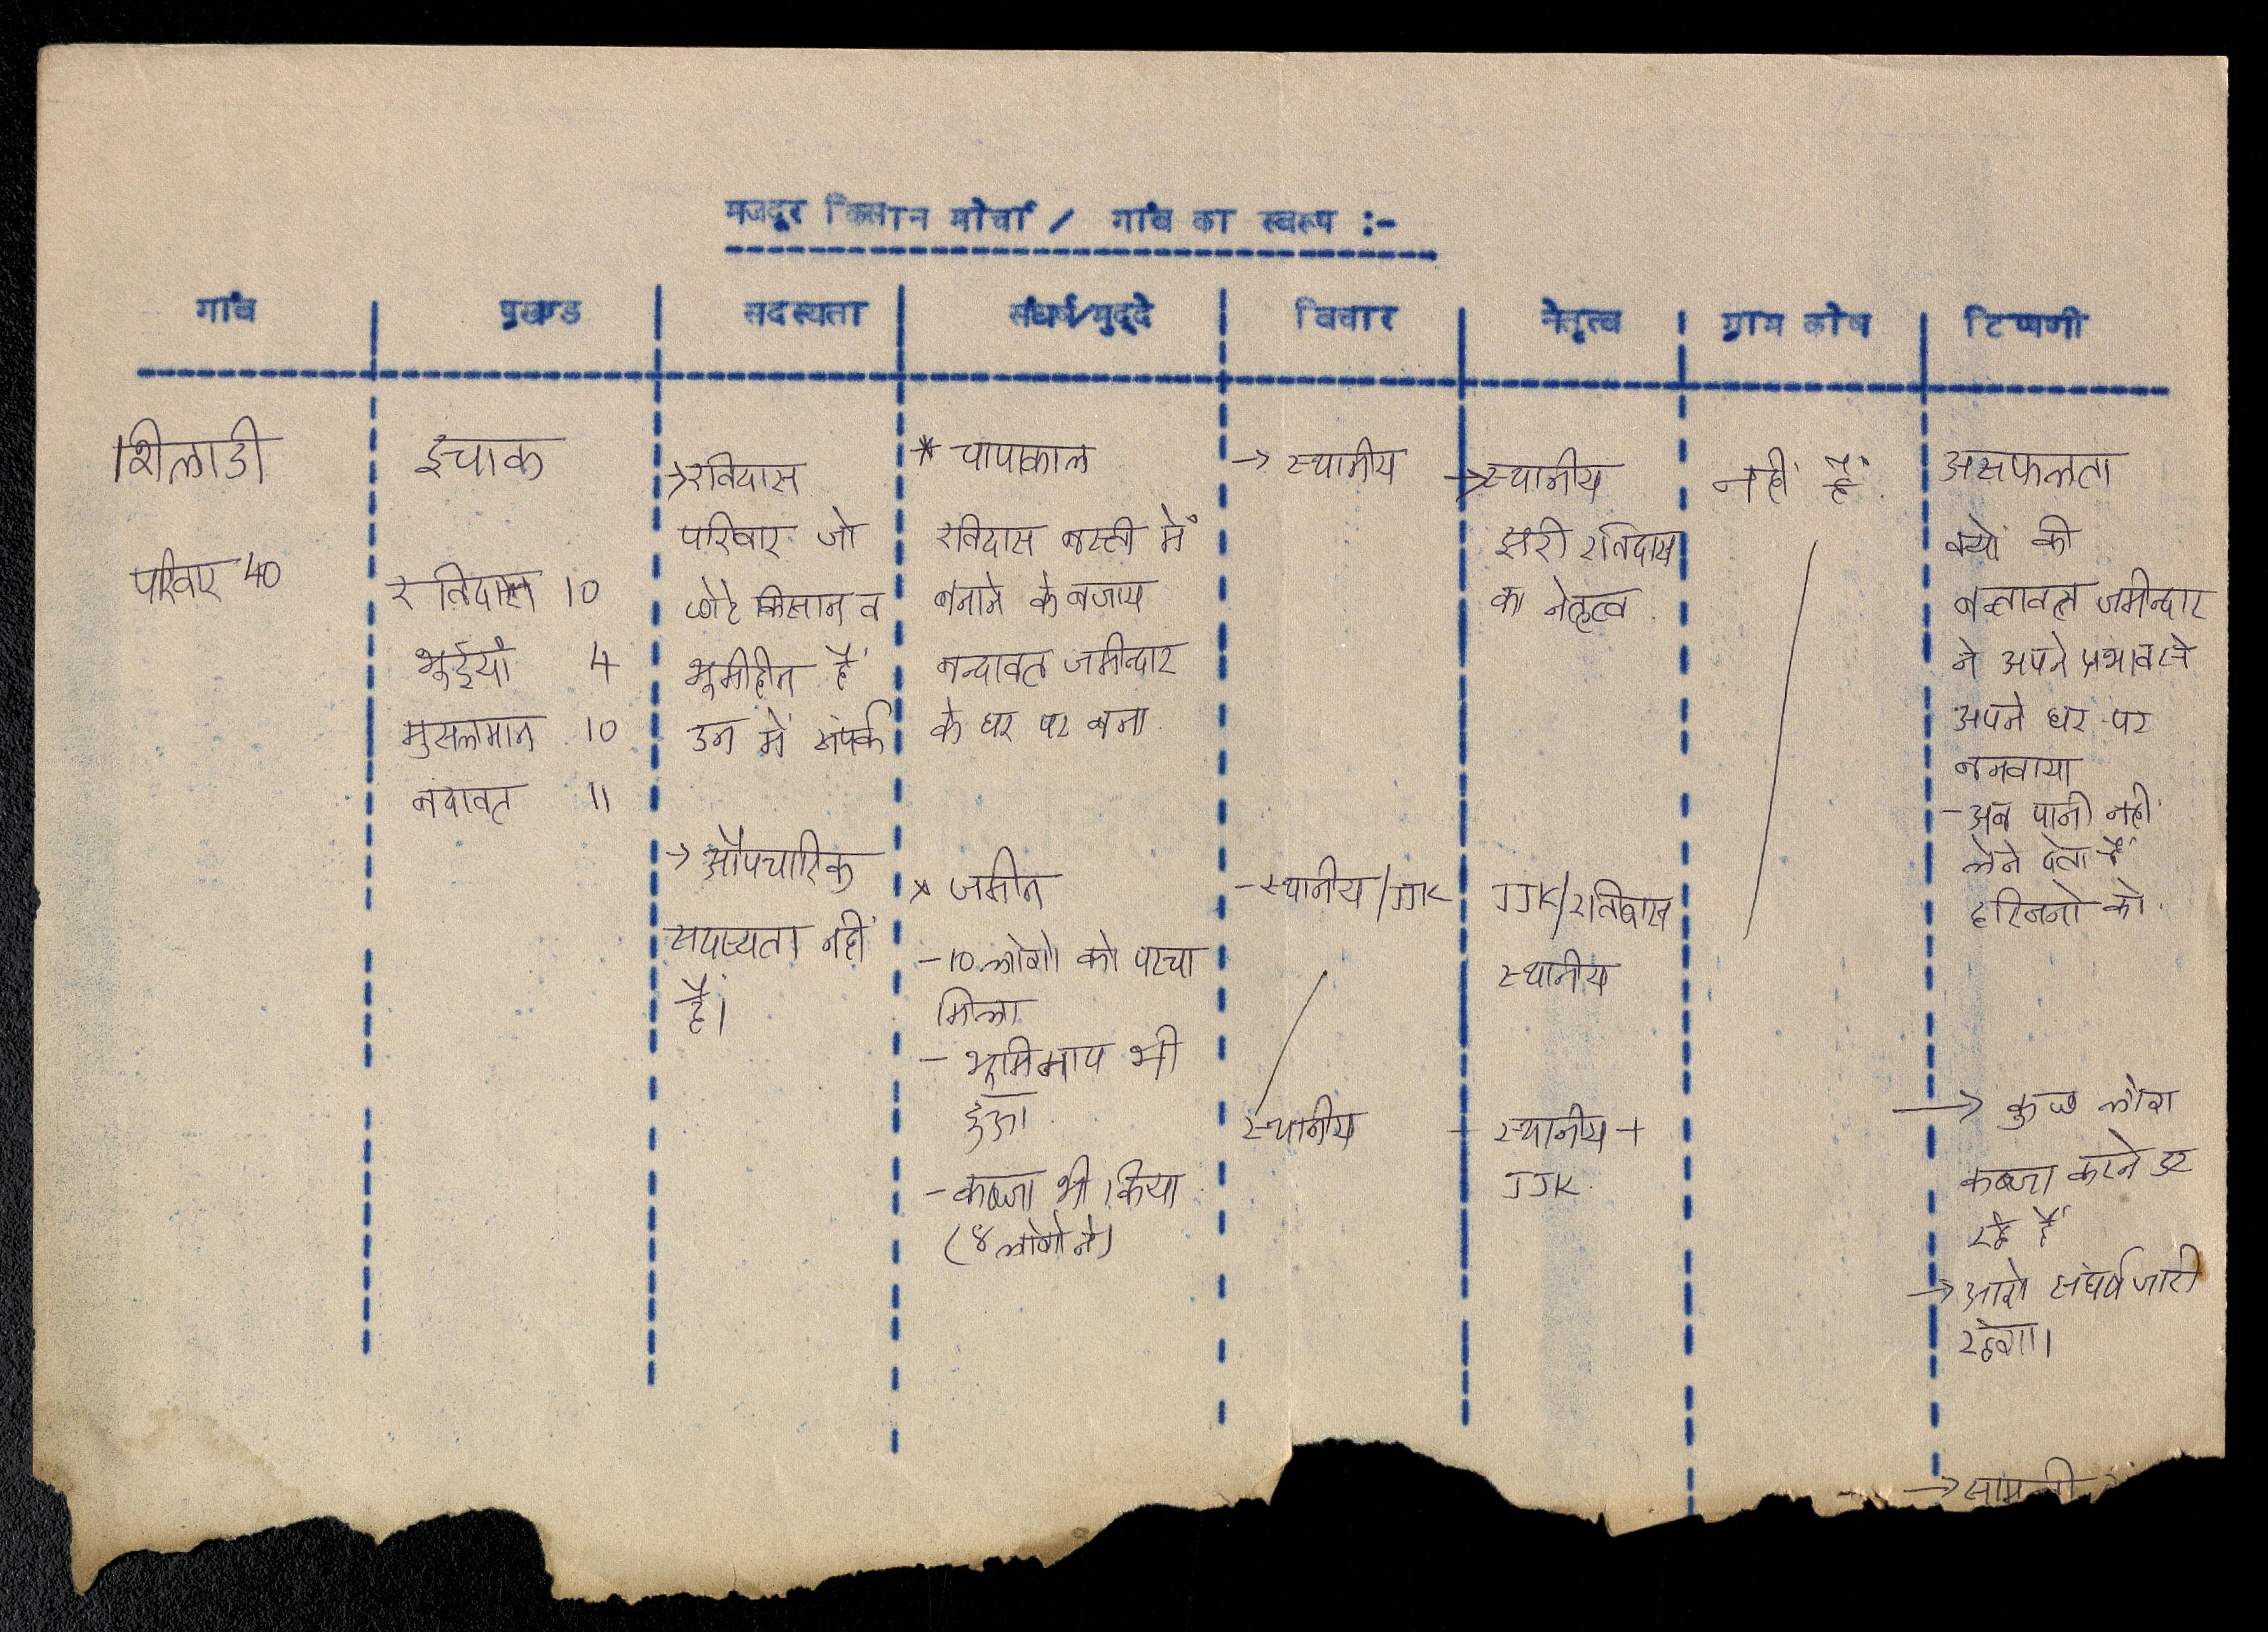 मजदूर किसान मोर्चा / गांव का स्वरूप :-
गांव प्रखण्ड सदस्यता संघर्ष/मुद्दे विचार नेतृत्व ग्राम कोष टिप्पणी
शिलाडी
परिवार 40
इचाक
रविदास 10
भूईयाँ 4
मुसलमान 10
बंदावत 11
→ रविदास
परिवार जो
छोटे किसान व
भूमीहीन हैं
उन में संपर्क
→ औपचारिक
सदस्यता नहीं
है।
* चापाकाल
रविदास बस्ती में
बनाने के बजाय
बन्दावत जमीन्दार
के घर पर बना.
* जमीन
- 10 लोगो को परचा
मिला
- भूमिमाप भी
हुआ.
- कब्जा भी किया
(४ लोगो ने)
→ स्थानीय
- स्थानीय/JJK
स्थानीय
→ स्थानीय
रविदास
का नेतृत्व.
JJK/रविदास
स्थानीय
- स्थानीय +
JJK.
नहीं हैं.
असफलता
क्यों की
जमीन्दार
ने अपने प्रभाव से
अपने घर पर
बनवाया
- अब पानी नहीं
लेने देता हैं
हरिजनो को.
→ कुछ लोग
कब्जा करने डर
रहे हैं
→ आगे संघर्ष जारी
रहेगा।